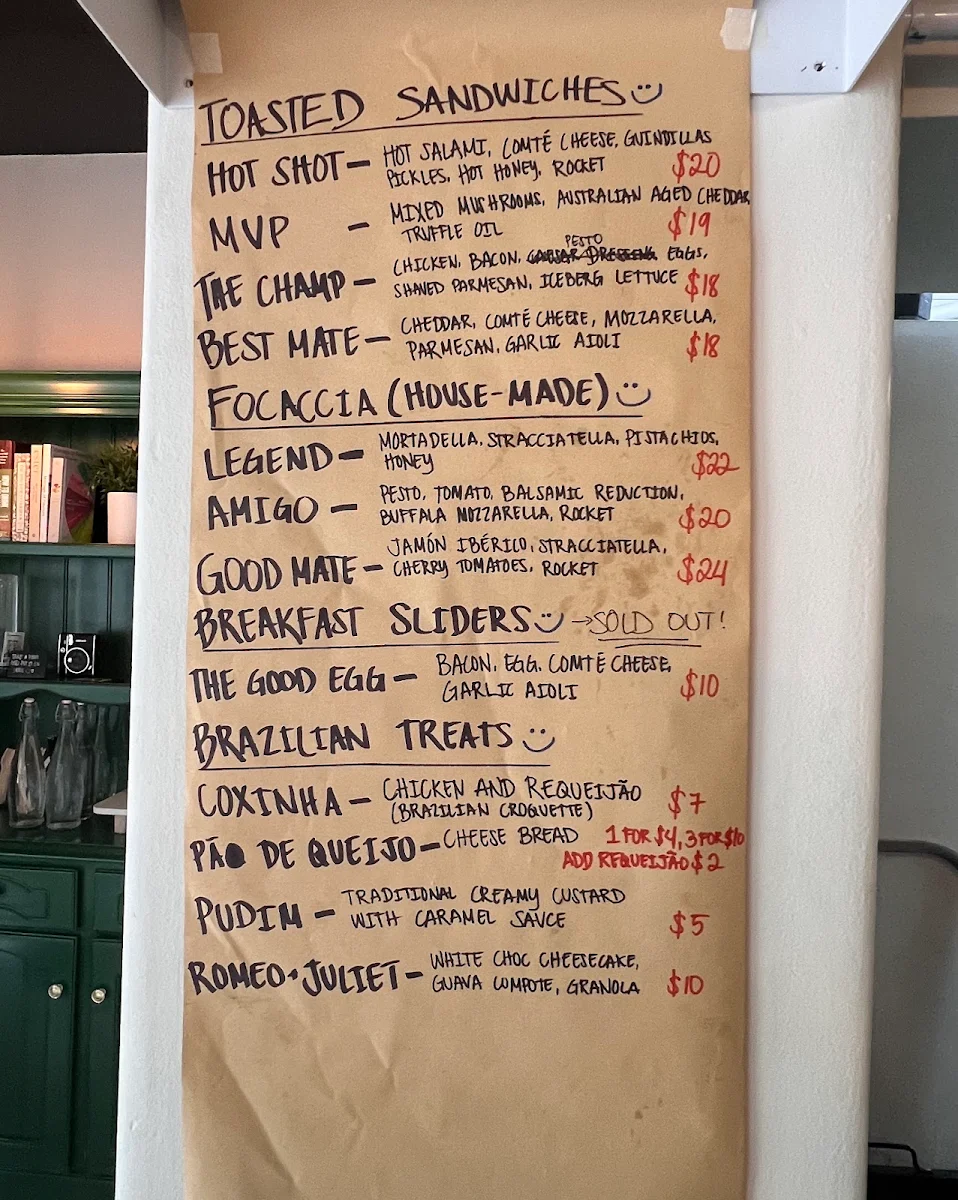 TOASTED SANDWICHES
HOT SHOT — HOT SALAMI, COMTÉ CHEESE, GUINDILLAS
PICKLES, HOT HONEY, ROCKET $20
MVP — MIXED MUSHROOMS, AUSTRALIAN AGED CHEDDAR,
TRUFFLE OIL $19
PESTO
THE CHAMP — CHICKEN, BACON, CAESAR DRESSING, EGGS,
SHAVED PARMESAN, ICEBERG LETTUCE $18
BEST MATE — CHEDDAR, COMTÉ CHEESE, MOZZARELLA,
PARMESAN, GARLIC AIOLI $18
FOCACCIA (HOUSE-MADE)
LEGEND — MORTADELLA, STRACCIATELLA, PISTACHIOS,
HONEY $22
AMIGO — PESTO, TOMATO, BALSAMIC REDUCTION,
BUFFALA MOZZARELLA, ROCKET $20
GOOD MATE — JAMÓN IBÉRICO, STRACCIATELLA,
CHERRY TOMATOES, ROCKET $24
BREAKFAST SLIDERS → SOLD OUT!
THE GOOD EGG — BACON, EGG, COMTÉ CHEESE,
GARLIC AIOLI $10
BRAZILIAN TREATS
COXINHA — CHICKEN AND REQUEIJÃO
(BRAZILIAN CROQUETTE) $7
PÃO DE QUEIJO — CHEESE BREAD 1 FOR $4, 3 FOR $10
ADD REQUEIJÃO $2
PUDIM — TRADITIONAL CREAMY CUSTARD
WITH CARAMEL SAUCE $5
ROMEO • JULIET — WHITE CHOC CHEESECAKE,
GUAVA COMPOTE, GRANOLA $10